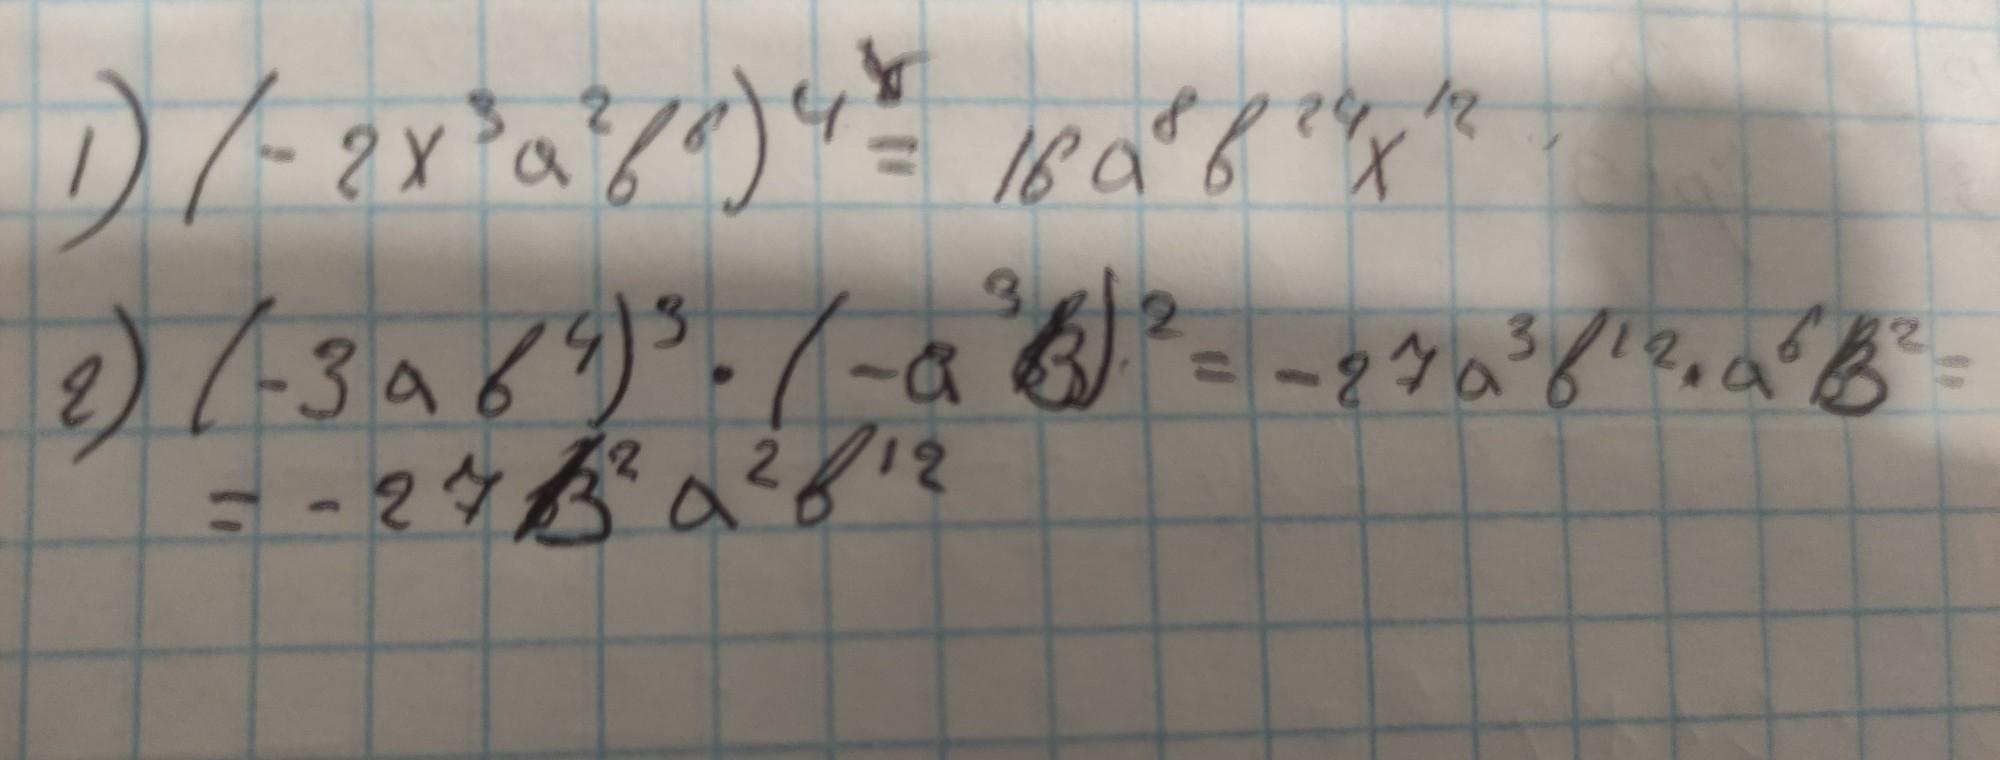 1) (-2x³a²b⁶)⁴ = 16a⁸b²⁴x¹²
2) (-3ab⁴)³ · (-a³B)² = -27a³b¹² · a⁶B² =
= -27B²a²b¹²